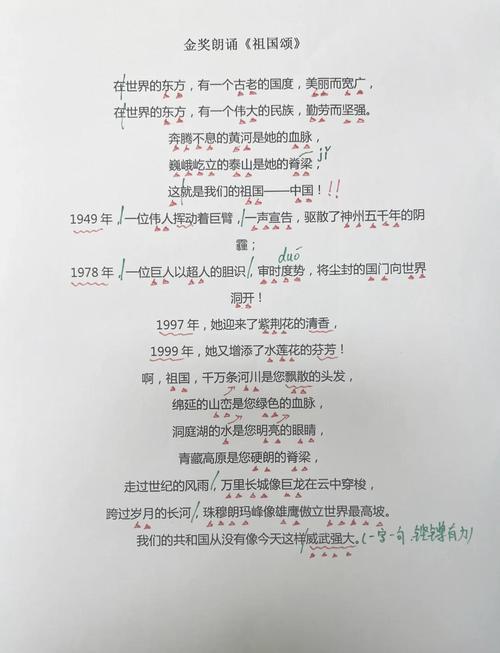 金奖朗诵《祖国颂》
在世界的东方，有一个古老的国度，美丽而宽广，
在世界的东方，有一个伟大的民族，勤劳而坚强。
奔腾不息的黄河是她的血脉，
巍峨屹立的泰山是她的脊梁； jǐ
这就是我们的祖国——中国！!!
1949 年，一位伟人挥动着巨臂，一声宣告，驱散了神州五千年的阴
霾；
duó
1978 年，一位巨人以超人的胆识，审时度势，将尘封的国门向世界
洞开！
1997 年，她迎来了紫荆花的清香，
1999 年，她又增添了水莲花的芬芳！
啊，祖国，千万条河川是您飘散的头发，
绵延的山峦是您绿色的血脉，
洞庭湖的水是您明亮的眼睛，
青藏高原是您硬朗的脊梁，
走过世纪的风雨，万里长城像巨龙在云中穿梭，
跨过岁月的长河，珠穆朗玛峰像雄鹰傲立世界最高坡。
我们的共和国从没有像今天这样威武强大。(一字一句.铿锵有力)